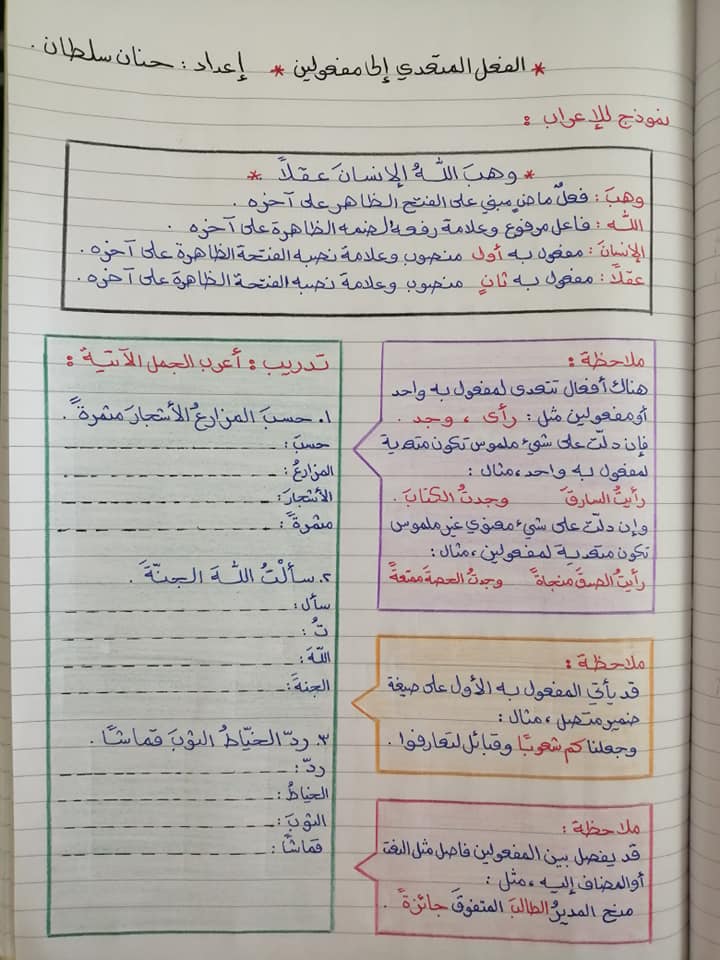 * الفعل المتعدي إلى مفعولين * إعداد : حنان سلطان .
نموذج للإعراب :
* وهبَ اللهُ الإنسانَ عقلاً *
وهبَ : فعلٌ ماضٍ مبني على الفتح الظاهر على آخره .
اللهُ : فاعل مرفوع وعلامة رفعه الضمه الظاهرة على آخره .
الإنسانَ : مفعول به أول منصوب وعلامة نصبه الفتحة الظاهرة على آخره .
عقلاً : مفعول به ثانٍ منصوب وعلامة نصبه الفتحة الظاهرة على آخره .
ملاحظة :
هناك أفعال تتعدى لمفعول به واحد
أو مفعولين مثل : رأى ، وجد .
فإن دلّت على شيء ملموس تكون متعدية
لمفعول به واحد ، مثال :
رأيتُ السارقَ وجدتُ الكتابَ .
وإن دلّت على شيء معنوي غير ملموس
تكون متعدية لمفعولين ، مثال :
رأيتُ الصدقَ منجاةً وجدتُ الحصةَ ممتعةً
ملاحظة :
قد يأتي المفعول به الأول على صيغة
ضمير متصل ، مثال :
وجعلناكم شعوبًا وقبائل لتعارفوا .
ملاحظة :
قد يفصل بين المفعولين فاصل مثل النعت
أو المضاف إليه ، مثل :
منح المديرُ الطالبَ المتفوقَ جائزةً .
تدريب : أعرب الجمل الآتية :
١. حسبَ المزارعُ الأشجارَ مثمرةً .
حسبَ :
المزارعُ :
الأشجارَ :
مثمرةً :
٢. سألْتُ اللهَ الجنّةَ .
سأل :
تُ :
اللهَ :
الجنةَ :
٣. ردّ الخيّاطُ الثوبَ قماشًا .
ردّ :
الخياطُ :
الثوبَ :
قماشًا :